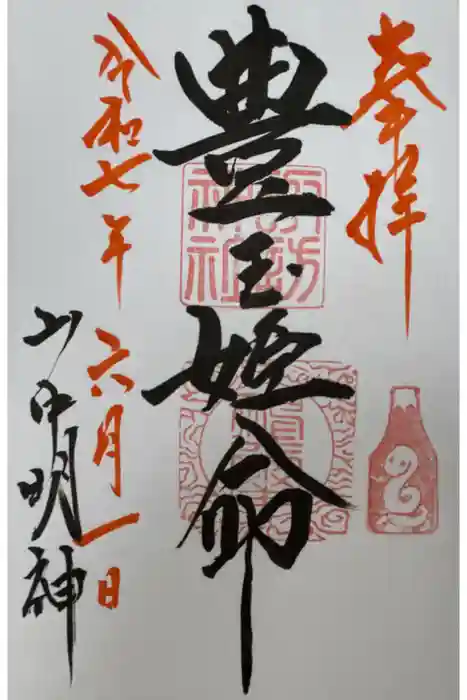 奉拝
豊玉姫命
令和七年
六月一日
山中明神
諏訪神社